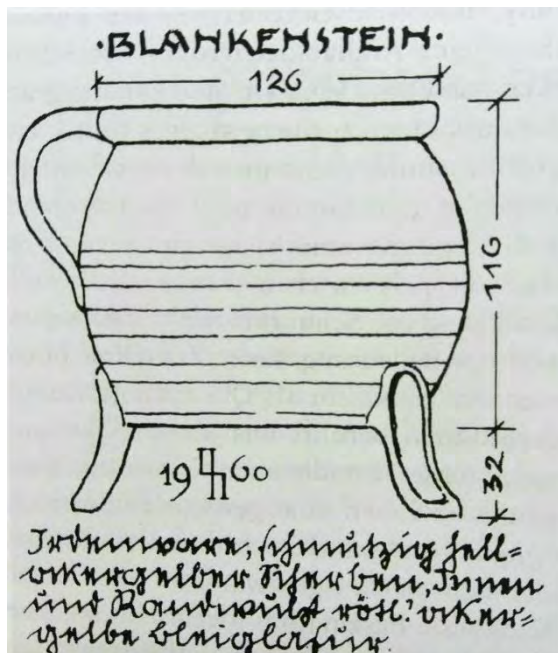 ·BLANKENSTEIN·
126
116
32
19 60
Irdenware, schmutzig hell=
ockergelber Scherben, Innen
und Randwulst rötl.' ocker-
gelbe Bleiglasur.